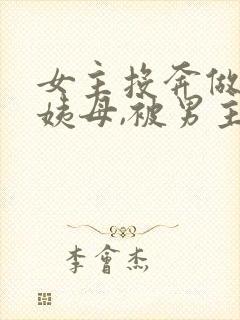 女主投奔做
姨母,被男主
李會杰